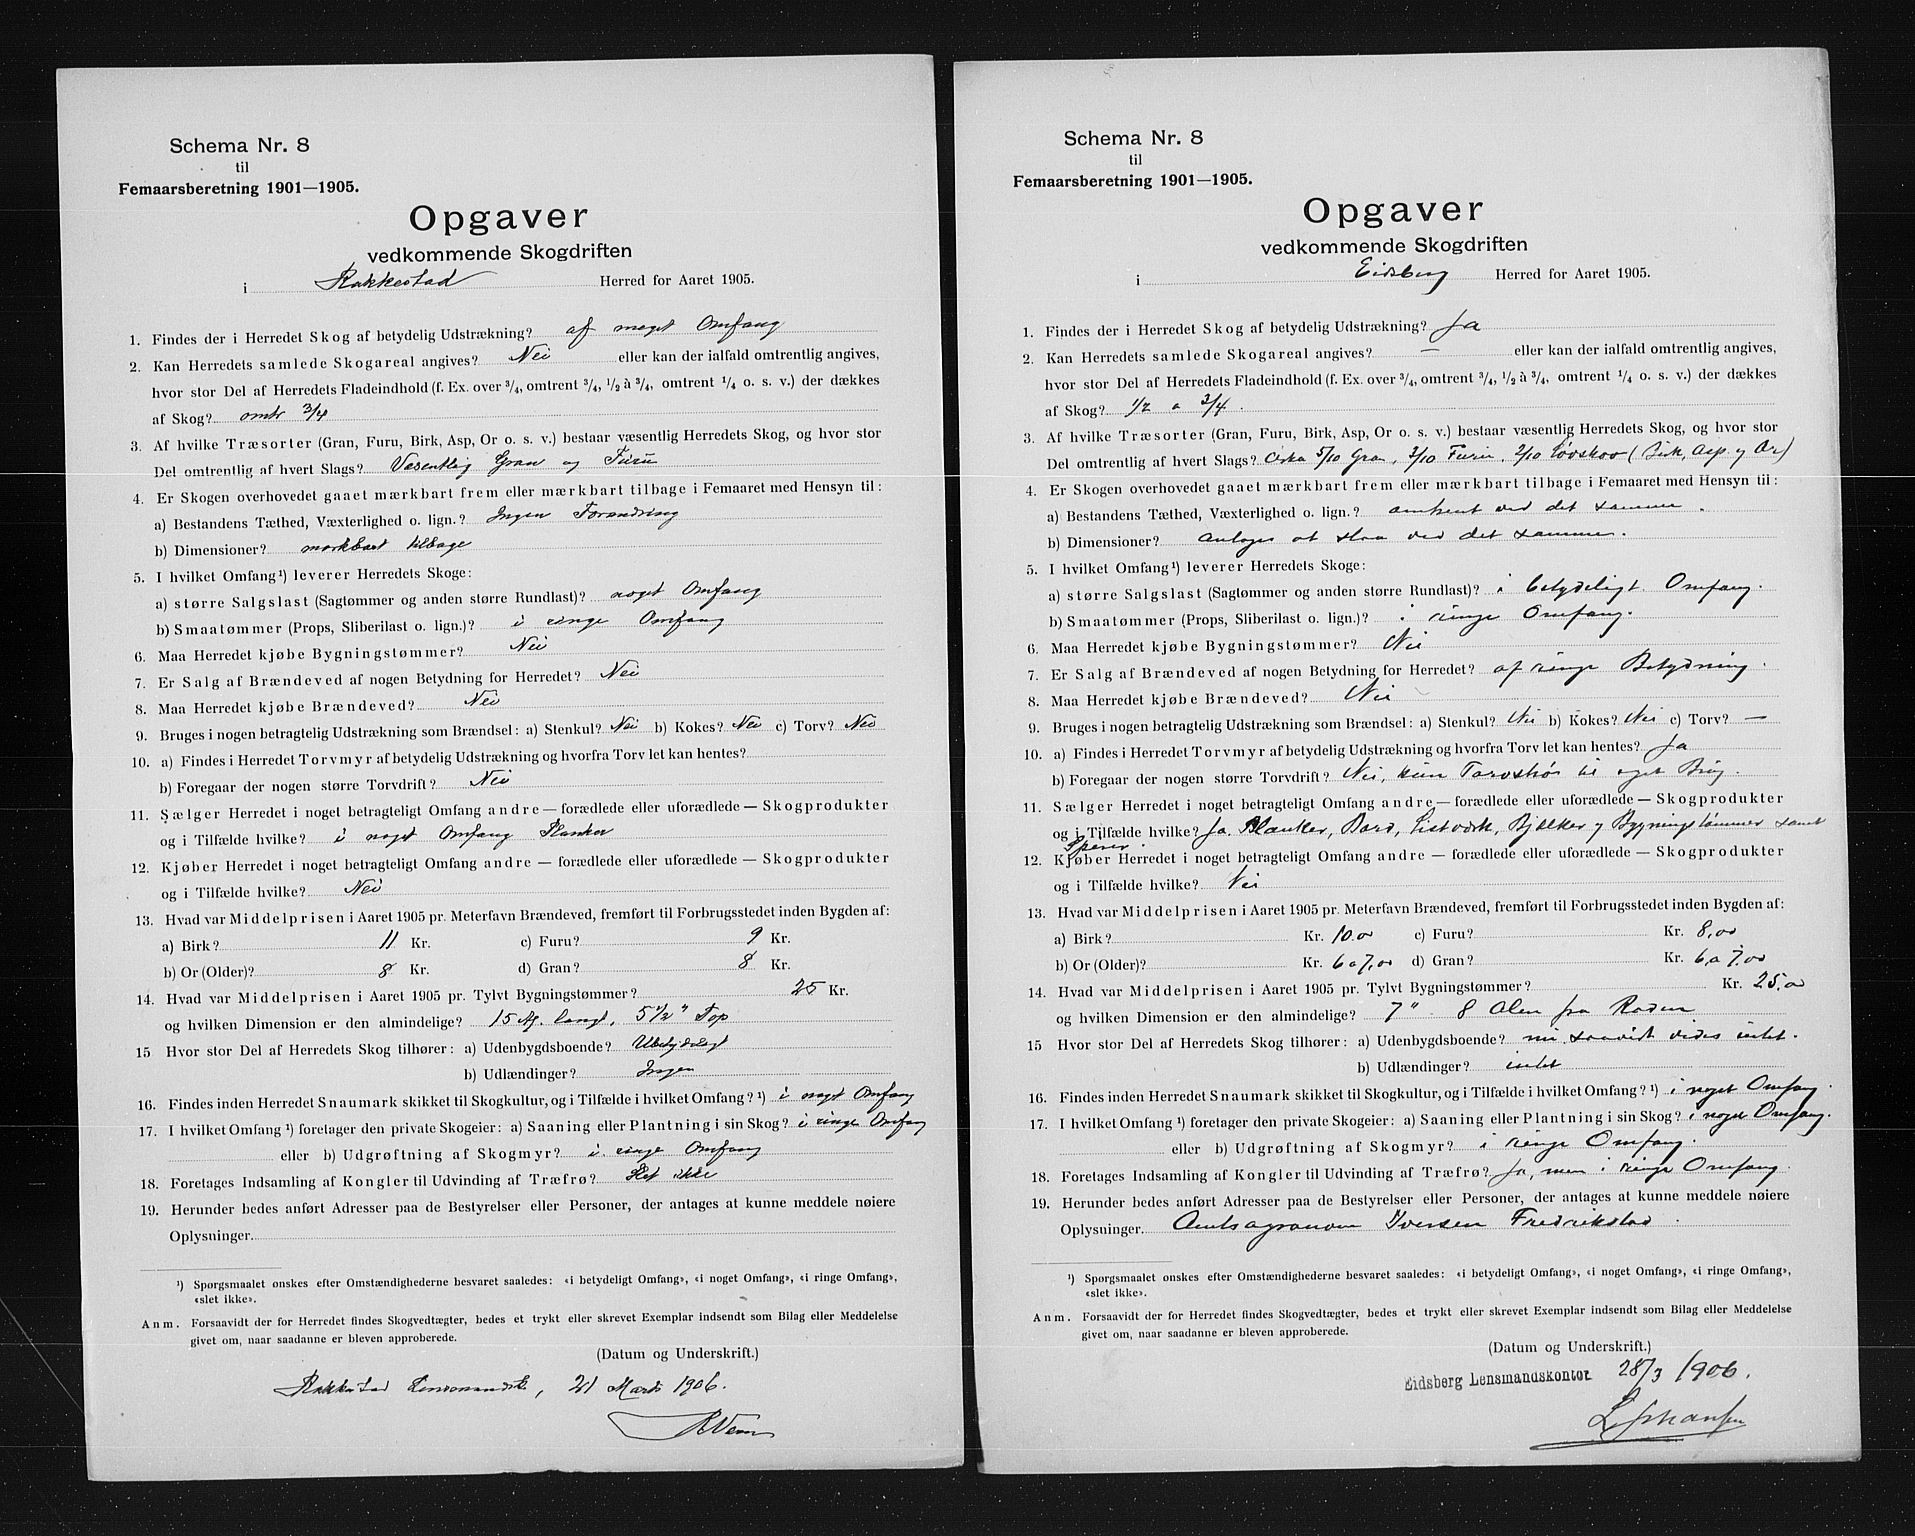 Schema Nr. 8
til
Femaarsberetning 1901—1905.
Opgaver
vedkommende Skogdriften
i Rakkestad Herred for Aaret 1905.
1. Findes der i Herredet Skog af betydelig Udstrækning? af noget Omfang
2. Kan Herredets samlede Skogareal angives? Nei eller kan der ialfald omtrentlig angives,
hvor stor Del af Herredets Fladeindhold (f. Ex. over 3/4, omtrent 3/4, 1/2 à 3/4, omtrent 1/4 o. s. v.) der dækkes
af Skog? omtr 3/4
3. Af hvilke Træsorter (Gran, Furu, Birk, Asp, Or o. s. v.) bestaar væsentlig Herredets Skog, og hvor stor
Del omtrentlig af hvert Slags? Væsentlig Gran og Furu
4. Er Skogen overhovedet gaaet mærkbart frem eller mærkbart tilbage i Femaaret med Hensyn til:
a) Bestandens Tæthed, Væxterlighed o. lign.? Ingen Forandring
b) Dimensioner? mærkbart tilbage
5. I hvilket Omfang¹) leverer Herredets Skoge:
a) større Salgslast (Sagtømmer og anden større Rundlast)? noget Omfang
b) Smaatømmer (Props, Sliberilast o. lign.)? i ringe Omfang
6. Maa Herredet kjøbe Bygningstømmer? Nei
7. Er Salg af Brændeved af nogen Betydning for Herredet? Nei
8. Maa Herredet kjøbe Brændeved? Nei
9. Bruges i nogen betragtelig Udstrækning som Brændsel: a) Stenkul? Nei b) Kokes? Nei c) Torv? Nei
10. a) Findes i Herredet Torvmyr af betydelig Udstrækning og hvorfra Torv let kan hentes?
b) Foregaar der nogen større Torvdrift? Nei
11. Sælger Herredet i noget betragteligt Omfang andre — forædlede eller uforædlede — Skogprodukter
og i Tilfælde hvilke? i noget Omfang Planker
12. Kjøber Herredet i noget betragteligt Omfang andre — forædlede eller uforædlede — Skogprodukter
og i Tilfælde hvilke? Nei
13. Hvad var Middelprisen i Aaret 1905 pr. Meterfavn Brændeved, fremført til Forbrugsstedet inden Bygden af:
a) Birk? 11 Kr. c) Furu? 9 Kr.
b) Or (Older)? 8 Kr. d) Gran? 8 Kr.
14. Hvad var Middelprisen i Aaret 1905 pr. Tylvt Bygningstømmer? 25 Kr.
og hvilken Dimension er den almindelige? 15 Al. langt, 5 1/2" Top
15 Hvor stor Del af Herredets Skog tilhører: a) Udenbygdsboende? Ubetydeligt
b) Udlændinger? Ingen
16. Findes inden Herredet Snaumark skikket til Skogkultur, og i Tilfælde i hvilket Omfang? ¹) i noget Omfang
17. I hvilket Omfang ¹) foretager den private Skogeier: a) Saaning eller Plantning i sin Skog? i ringe Omfang
eller b) Udgrøftning af Skogmyr? i ringe Omfang
18. Foretages Indsamling af Kongler til Udvinding af Træfrø? Slet ikke
19. Herunder bedes anført Adresser paa de Bestyrelser eller Personer, der antages at kunne meddele nøiere
Oplysninger.
¹) Spørgsmaalet ønskes efter Omstændighederne besvaret saaledes: «i betydeligt Omfang», «i noget Omfang», «i ringe Omfang»,
«slet ikke».
Anm. Forsaavidt der for Herredet findes Skogvedtægter, bedes et trykt eller skrevet Exemplar indsendt som Bilag eller Meddelelse
givet om, naar saadanne er bleven approberede.
(Datum og Underskrift.)
Rakkestad 21 Marts 1906.
Schema Nr. 8
til
Femaarsberetning 1901—1905.
Opgaver
vedkommende Skogdriften
i Eidsberg Herred for Aaret 1905.
1. Findes der i Herredet Skog af betydelig Udstrækning? Ja
2. Kan Herredets samlede Skogareal angives? — eller kan der ialfald omtrentlig angives,
hvor stor Del af Herredets Fladeindhold (f. Ex. over 3/4, omtrent 3/4, 1/2 à 3/4, omtrent 1/4 o. s. v.) der dækkes
af Skog? 1/2 a 3/4.
3. Af hvilke Træsorter (Gran, Furu, Birk, Asp, Or o. s. v.) bestaar væsentlig Herredets Skog, og hvor stor
Del omtrentlig af hvert Slags? Cirka 5/10 Gran, 3/10 Furu, 2/10 Løvskov (Birk, Asp og Or)
4. Er Skogen overhovedet gaaet mærkbart frem eller mærkbart tilbage i Femaaret med Hensyn til:
a) Bestandens Tæthed, Væxterlighed o. lign.? omtrent ved det samme.
b) Dimensioner? antages at staa ved det samme.
5. I hvilket Omfang¹) leverer Herredets Skoge:
a) større Salgslast (Sagtømmer og anden større Rundlast)? i betydeligt Omfang.
b) Smaatømmer (Props, Sliberilast o. lign.)? i ringe Omfang.
6. Maa Herredet kjøbe Bygningstømmer? Nei
7. Er Salg af Brændeved af nogen Betydning for Herredet? af ringe Betydning.
8. Maa Herredet kjøbe Brændeved? Nei
9. Bruges i nogen betragtelig Udstrækning som Brændsel: a) Stenkul? Nei b) Kokes? Nei c) Torv? —
10. a) Findes i Herredet Torvmyr af betydelig Udstrækning og hvorfra Torv let kan hentes? Ja
b) Foregaar der nogen større Torvdrift? Nei, kun Torvstrø til eget Brug.
11. Sælger Herredet i noget betragteligt Omfang andre — forædlede eller uforædlede — Skogprodukter
og i Tilfælde hvilke? Ja. Planker, Bord, Listværk, Bjælker og Bygningstømmer samt
Sperrer.
12. Kjøber Herredet i noget betragteligt Omfang andre — forædlede eller uforædlede — Skogprodukter
og i Tilfælde hvilke? Nei
13. Hvad var Middelprisen i Aaret 1905 pr. Meterfavn Brændeved, fremført til Forbrugsstedet inden Bygden af:
a) Birk? Kr. 10.00 c) Furu? Kr. 8,00
b) Or (Older)? Kr. 6 a 7,00 d) Gran? Kr. 6 a 7.00
14. Hvad var Middelprisen i Aaret 1905 pr. Tylvt Bygningstømmer? Kr. 25,00
og hvilken Dimension er den almindelige? 7" 8 Alen fra Roden
15 Hvor stor Del af Herredets Skog tilhører: a) Udenbygdsboende? saavidt vides intet.
b) Udlændinger? intet
16. Findes inden Herredet Snaumark skikket til Skogkultur, og i Tilfælde i hvilket Omfang? ¹) i noget Omfang.
17. I hvilket Omfang ¹) foretager den private Skogeier: a) Saaning eller Plantning i sin Skog? i noget Omfang.
eller b) Udgrøftning af Skogmyr? i ringe Omfang.
18. Foretages Indsamling af Kongler til Udvinding af Træfrø? Ja, men i ringe Omfang.
19. Herunder bedes anført Adresser paa de Bestyrelser eller Personer, der antages at kunne meddele nøiere
Oplysninger. Amtsagronom Iversen Fredrikstad.
¹) Spørgsmaalet ønskes efter Omstændighederne besvaret saaledes: «i betydeligt Omfang», «i noget Omfang», «i ringe Omfang»,
«slet ikke».
Anm. Forsaavidt der for Herredet findes Skogvedtægter, bedes et trykt eller skrevet Exemplar indsendt som Bilag eller Meddelelse
givet om, naar saadanne er bleven approberede.
(Datum og Underskrift.)
Eidsberg Lensmandskontor 28/3 1906.